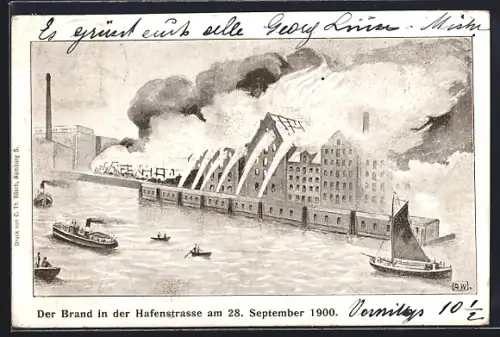 Es grüsst euch alle Georg Luise
Druck von C. Th. Bösch, Hamburg 3.
(A.W).
Der Brand in der Hafenstrasse am 28. September 1900.
10 ½